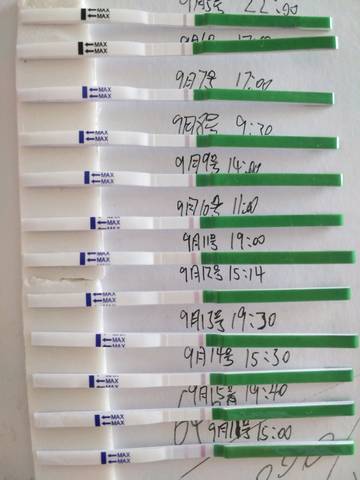 9月5号 22:00
MAX
MAX
17:00
MAX
MAX
9月7号 17:00
MAX
MAX
9月8号 9:30
MAX
MAX
9月9号 14:00
MAX
MAX
9月10号 11:00
MAX
MAX
9月11号 19:00
MAX
MAX
9月12号 15:14
MAX
MAX
9月13号 19:30
MAX
MAX
9月14号 15:30
MAX
MAX
9月15号 19:40
MAX
MAX
15:00
MAX
MAX